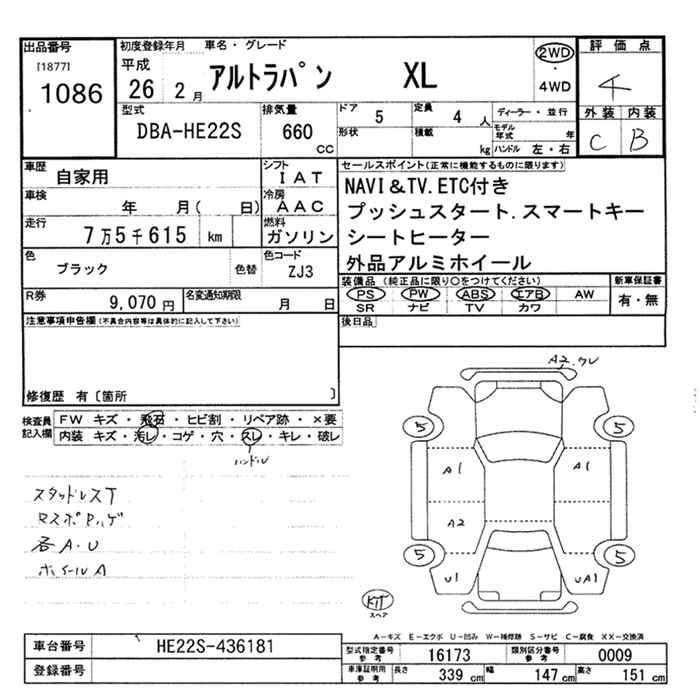 出品番号
[1877]
1086
初度登録年月 車名・グレード
平成
26 2月 アルトラパン XL
2WD
・
4WD
評価点
4
外装 内装
C B
型式
DBA-HE22S
排気量
660 cc
ドア 5
定員 4 人
ディーラー・並行
形状
積載 kg
モデル年式 年
ハンドル 左・右
車歴
自家用
シフト
IAT
車検
年 月( 日)
冷房
AAC
走行
7万5千615 km
燃料
ガソリン
色
ブラック
色替
色コード
ZJ3
R券 9,070円
名変通知期限 月 日
セールスポイント(正常に機能するものに限ります)
NAVI&TV.ETC付き
プッシュスタート.スマートキー
シートヒーター
外品アルミホイール
装備品(純正品に限り○をつけてください)
PS PW ABS エアB AW
SR ナビ TV カワ
新車保証書
有・無
後日品
注意事項申告欄(不具合内容等は具体的に記入して下さい)
修復歴 有〔箇所 〕
検査員
記入欄
FW キズ・飛石・ヒビ割・リペア跡・×要
内装 キズ・汚レ・コゲ・穴・スレ・キレ・破レ
ハンドル
スタッドレスT
各A.U
ホイールA
A2.クレ
5 5
A1 A1
A2
5 5
U1 UA1
KIT
スペア
A-キズ E-エクボ U-凹み W-補修跡 S-サビ C-腐食 XX-交換済
車台番号 HE22S-436181
登録番号
型式指定番号
参考
16173
類別区分番号
参考
0009
車庫証明用
参考
長さ 339 cm 幅 147 cm 高さ 151 cm